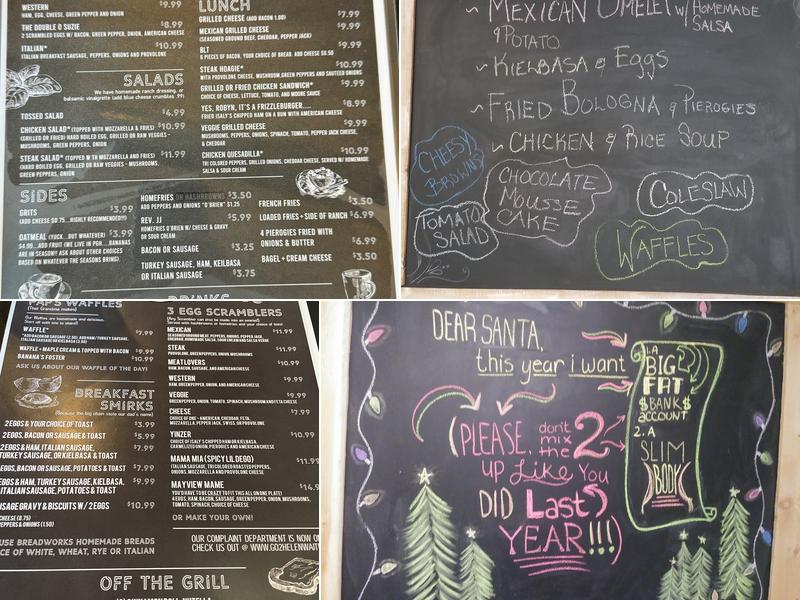 WESTERN $9.99
HAM, EGGS, CHEESE, GREEN PEPPER AND ONION
THE DOUBLE O SUZIE $8.99
2 SCRAMBLED EGGS W/ BACON, GREEN PEPPER, ONION, AMERICAN CHEESE
ITALIAN* $10.99
ITALIAN BREAKFAST SAUSAGE, PEPPERS, ONIONS AND PROVOLONE
SALADS
We have homemade ranch dressing, or
balsamic vinaigrette (add blue cheese crumbles .99)
TOSSED SALAD $4.99
CHICKEN SALAD* (TOPPED WITH MOZZARELLA & FRIES) $10.99
(GRILLED OR FRIED) HARD BOILED EGG, GRILLED OR RAW VEGGIES -
MUSHROOMS, GREEN PEPPERS, ONION
STEAK SALAD* (TOPPED WITH MOZZARELLA AND FRIES) $11.99
(HARD BOILED EGG, GRILLED OR RAW VEGGIES - MUSHROOMS,
GREEN PEPPERS, ONION)
LUNCH
GRILLED CHEESE (ADD BACON 1.00) $7.99
MEXICAN GRILLED CHEESE $9.99
(SEASONED GROUND BEEF, CHEDDAR, PEPPER JACK)
BLT $9.99
6 PIECES OF BACON, YOUR CHOICE OF BREAD. ADD CHEESE $0.50
STEAK HOAGIE* $10.99
WITH PROVOLONE CHEESE, MUSHROOM, GREEN PEPPERS AND SAUTEED ONIONS
GRILLED OR FRIED CHICKEN SANDWICH* $9.99
CHOICE OF CHEESE, LETTUCE, TOMATO, AND MOORE SAUCE
YES, ROBYN, IT'S A FRIZZLEBURGER.... $8.99
FRIED ISALY'S CHIPPED HAM ON A BUN WITH AMERICAN CHEESE
VEGGIE GRILLED CHEESE $9.99
MUSHROOMS, PEPPERS, ONIONS, SPINACH, TOMATO, PEPPER JACK CHEESE,
& CHEDDAR
CHICKEN QUESADILLA* $10.99
TRI COLORED PEPPERS, GRILLED ONIONS, CHEDDAR CHEESE, SERVED W/ HOMEMADE
SALSA & SOUR CREAM
SIDES
GRITS $3.99
(ADD CHEESE $0.75...HIGHLY RECOMMENDED!!!)
OATMEAL (YUCK...BUT WHATEVER) $3.99
$4.99...ADD FRUIT (WE LIVE IN PGH....BANANAS
ARE IN SEASON!! ASK ABOUT OTHER CHOICES
BASED ON WHATEVER THE SEASON BRINGS).
HOMEFRIES OR HASHBROWNS $3.50
ADD PEPPERS AND ONIONS "O'BRIEN" $1.25
REV. JJ $5.99
HOMEFRIES O'BRIEN W/ CHEESE & GRAVY
OR SOUR CREAM
BACON OR SAUSAGE $3.25
TURKEY SAUSAGE, HAM, KEILBASA
OR ITALIAN SAUSAGE $3.75
FRENCH FRIES $3.50
LOADED FRIES + SIDE OF RANCH $6.99
4 PIEROGIES FRIED WITH
ONIONS & BUTTER $6.99
BAGEL + CREAM CHEESE $3.50
~ MEXICAN OMELET W/ HOMEMADE
SALSA
& POTATO
~ KIELBASA & EGGS
~ FRIED BOLOGNA & PIEROGIES
~ CHICKEN & RICE SOUP
CHEESY
BROWNS
CHOCOLATE
MOUSSE
CAKE
COLESLAW
TOMATO
SALAD
WAFFLES
PAP'S WAFFLES
(That Grandma makes)
Our Waffles are homemade and delicious.
WAFFLE* $7.99
WAFFLE + MAPLE CREAM & TOPPED WITH BACON $9.99
BANANA'S FOSTER $10.99
ASK US ABOUT OUR WAFFLE OF THE DAY!
BREAKFAST
SMIRKS
(Because the big chain stole our dad's name)
2 EGGS & YOUR CHOICE OF TOAST $3.99
2 EGGS, BACON OR SAUSAGE & TOAST $5.99
2 EGGS & HAM, ITALIAN SAUSAGE,
TURKEY SAUSAGE, OR KIELBASA & TOAST $7.99
EGGS, BACON OR SAUSAGE, POTATOES & TOAST $7.99
EGGS & HAM, TURKEY SAUSAGE, KIELBASA,
ITALIAN SAUSAGE, POTATOES & TOAST $9.99
USAGE GRAVY & BISCUITS W/ 2 EGGS $10.99
CHEESE (0.75)
PEPPERS & ONIONS (1.50)
USE BREADWORKS HOMEMADE BREADS
CE OF WHITE, WHEAT, RYE OR ITALIAN
3 EGG SCRAMBLERS
MEXICAN $11.99
STEAK $11.99
PROVOLONE, GREEN PEPPERS, ONION, MUSHROOMS
MEATLOVERS $10.99
HAM, BACON, SAUSAGE AND AMERICAN CHEESE
WESTERN $9.99
HAM, GREEN PEPPER, ONION, AND AMERICAN CHEESE
VEGGIE $9.99
GREEN PEPPER, ONION, TOMATO, MUSHROOMS, AND AMERICAN CHEESE
CHEESE $7.99
CHOICE OF ONE - AMERICAN, CHEDDAR, FETA,
MOZZARELLA, PEPPER JACK, SWISS, OR PROVOLONE
YINZER $10.99
MAMA MIA (SPICY LIL DEGO) $11.99
ITALIAN SAUSAGE, TRI COLORED ROASTED PEPPERS,
ONIONS, MOZZARELLA AND PROVOLONE CHEESE
MAYVIEW MAME $14.9
YOU'D HAVE TO BE CRAZY TO FIT THIS ALL ON ONE PLATE!
4 EGGS, HAM, BACON, SAUSAGE, GREEN PEPPER, ONION, MUSHROOMS,
TOMATO, SPINACH, CHOICE OF CHEESE
OR MAKE YOUR OWN!
OUR COMPLAINT DEPARTMENT IS NOW ON
CHECK US OUT @ WWW.GO2HELENWAIT
OFF THE GRILL
DEAR SANTA,
this year i want
1. A
BIG
FAT
$BANK$
account
2. A
SLIM
BODY
(PLEASE, don't
mix
the 2
up Like You
DID Last
YEAR!!!)